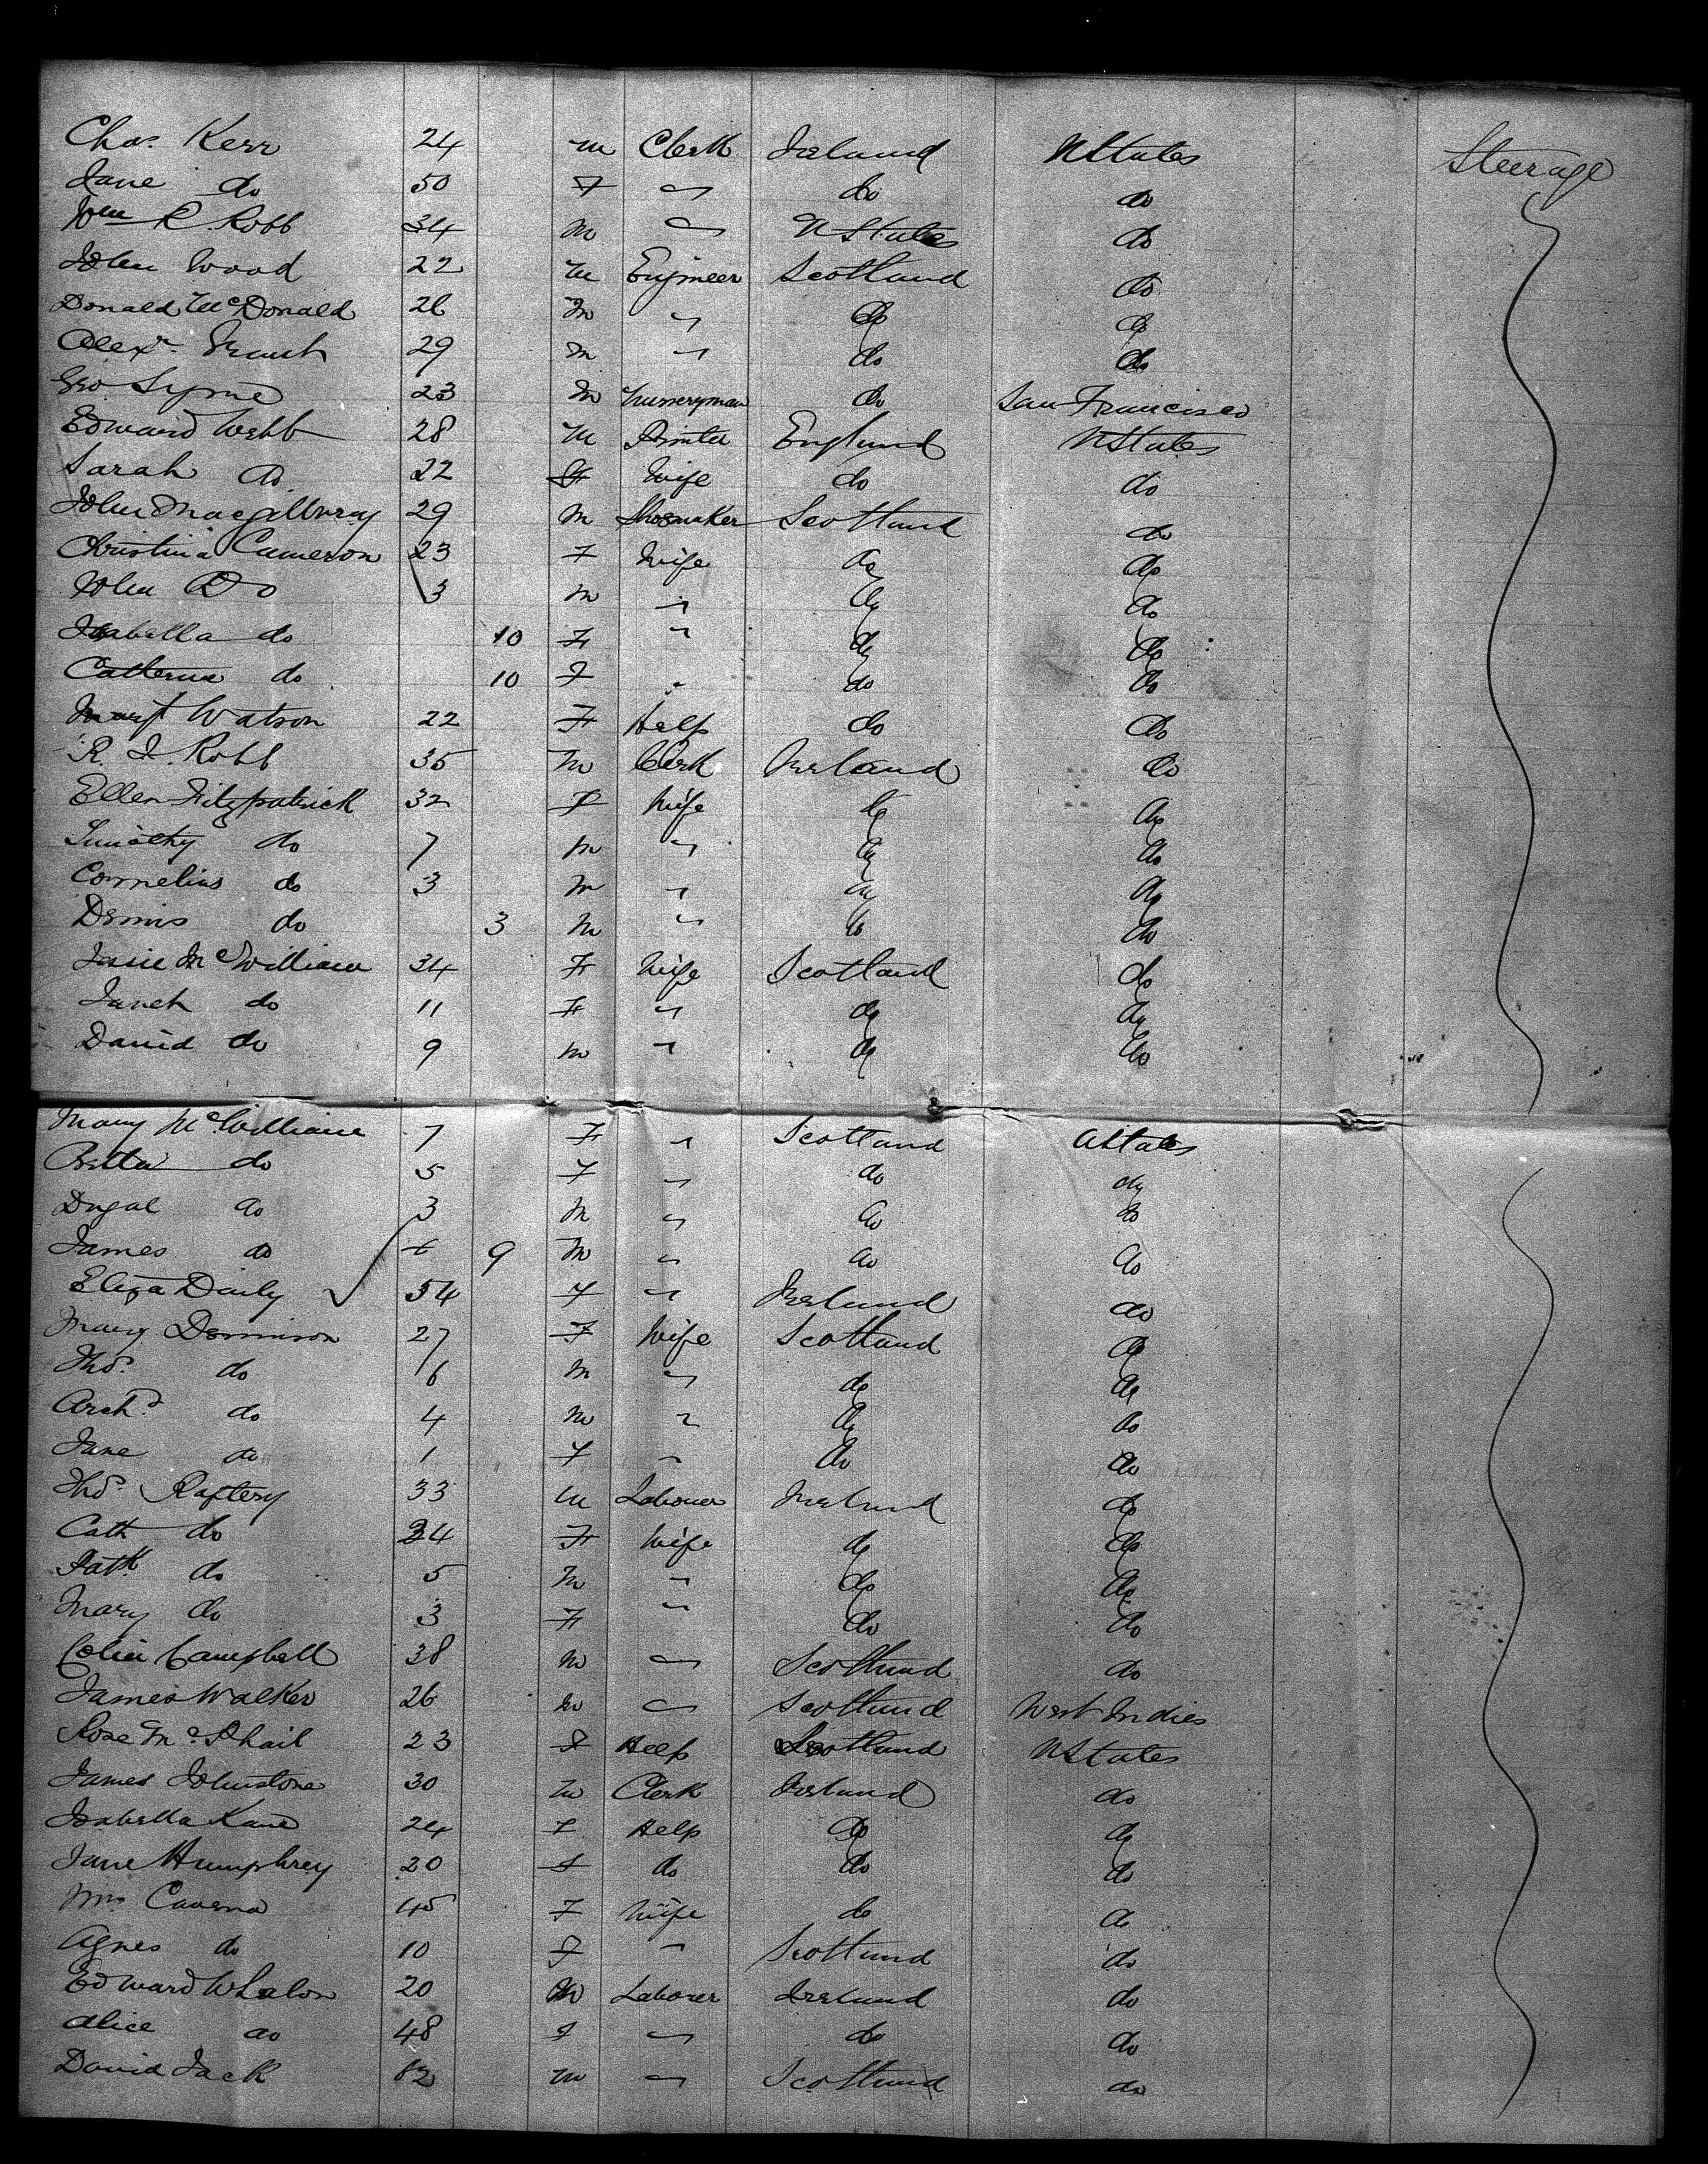 Chas. Kerr 24 m Clerk Ireland UStates Steerage
Jane do 50 F " do do
Wm R. Robb 34 m " UStates do
John Wood 22 m Engineer Scotland do
Donald McDonald 26 m " do do
Alexr. Grant 29 m " do do
Geo Syme 23 m Nurseryman do San Francisco
Edward Webb 28 m Printer England UStates
Sarah do 22 F Wife do do
John Macgillvray 29 m Shoemaker Scotland do
Christina Cameron 23 F Wife do do
John Do 3 m " do do
Isabella do 10 F " do do
Catherine do 10 F " do do
Margt Watson 22 F Help do do
R. J. Robb 35 m Clerk Ireland do
Ellen Fitzpatrick 32 F Wife do do
Timothy do 7 m " do do
Cornelius do 3 m " do do
Dennis do 3 m " do do
Jessie McWilliam 34 F Wife Scotland do
Janet do 11 F " do do
David do 9 m " do do
Mary McWilliam 7 F " Scotland UStates
do 5 F " do do
Dugal do 3 m " do do
James do 9 m " do do
Eliza Daily 54 F " Ireland do
Mary Dennison 27 F Wife Scotland do
Thos. do 6 m " do do
Archd. do 4 m " do do
Jane do 1 F " do do
Thos. Raftery 33 m Laborer Ireland do
Cath do 34 F Wife do do
Patk do 5 m " do do
Mary do 3 F " do do
Colin Campbell 38 m " Scotland do
James Walker 26 m " Scotland West Indies
Rose McPhail 23 F Help Scotland UStates
James Johnstone 30 m Clerk Ireland do
Isabella Kane 24 F Help do do
Jane Humphrey 20 F do do do
Mrs 45 F Wife do do
Agnes do 10 F " Scotland do
Edward Whalon 20 m Laborer Ireland do
Alice do 48 F " do do
David Jack m " Scotland do